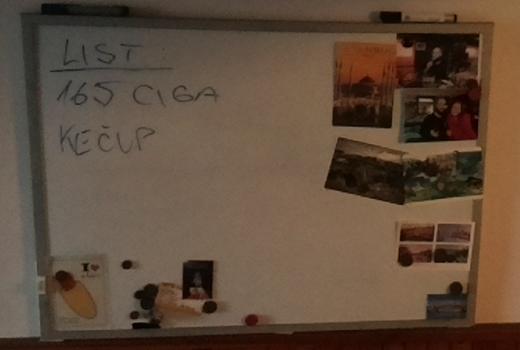 LIST
165 CIGA
KEČUP
I